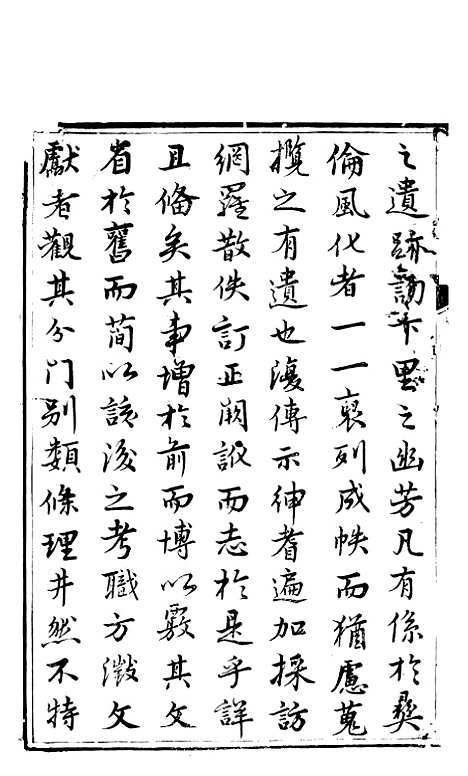 之遺踪訪下里之幽芳凡有係於彝
倫風化者一一裒列成帙而猶慮蒐
攬之有遺也復傳示紳耆遍加採訪
網羅散佚訂正闕訛而志於是乎詳
且備矣其事增於前而博以覈其文
省於舊而簡以該後之考職方徵文
獻者觀其分門別類條理井然不特